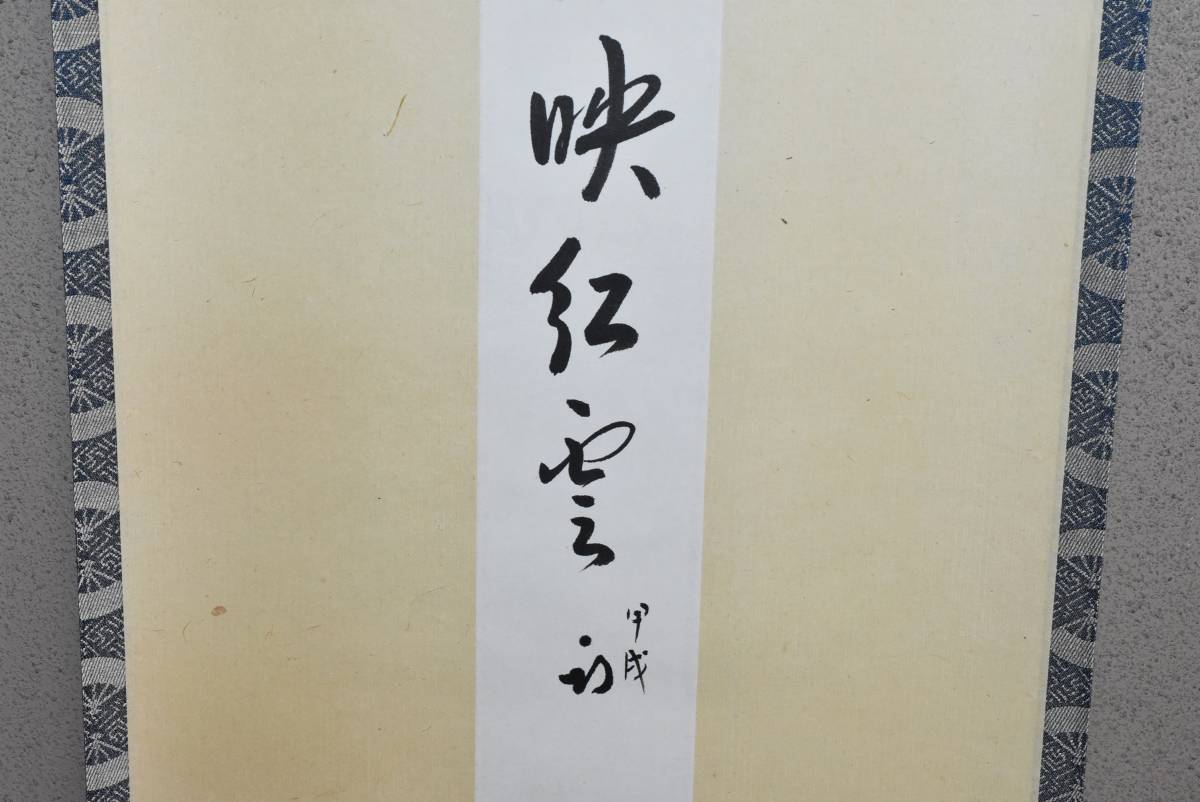 映紅雲
甲戌